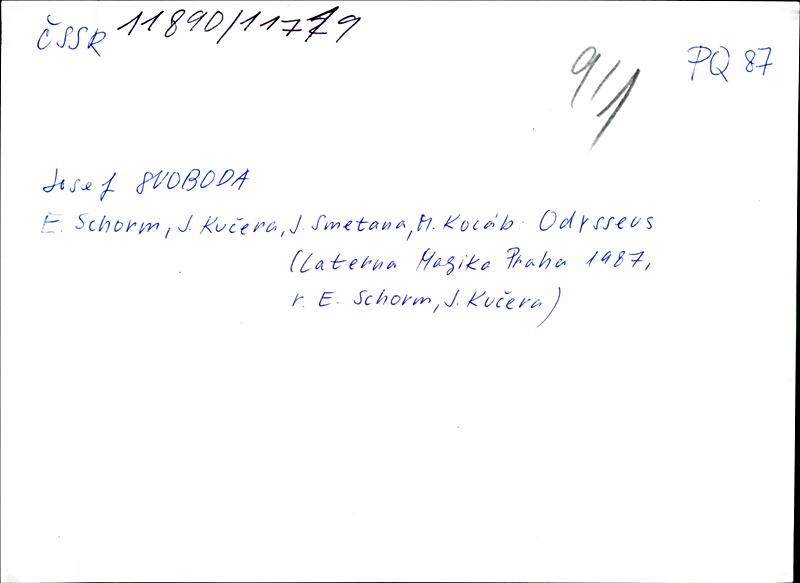 ČSSR 11890/11779
9/1
PQ 87
Josef SVOBODA
E. Schorm, J. Kučera, J. Smetana, M. Kocáb: Odysseus
(Laterna Magika Praha 1987,
r. E. Schorm, J. Kučera)